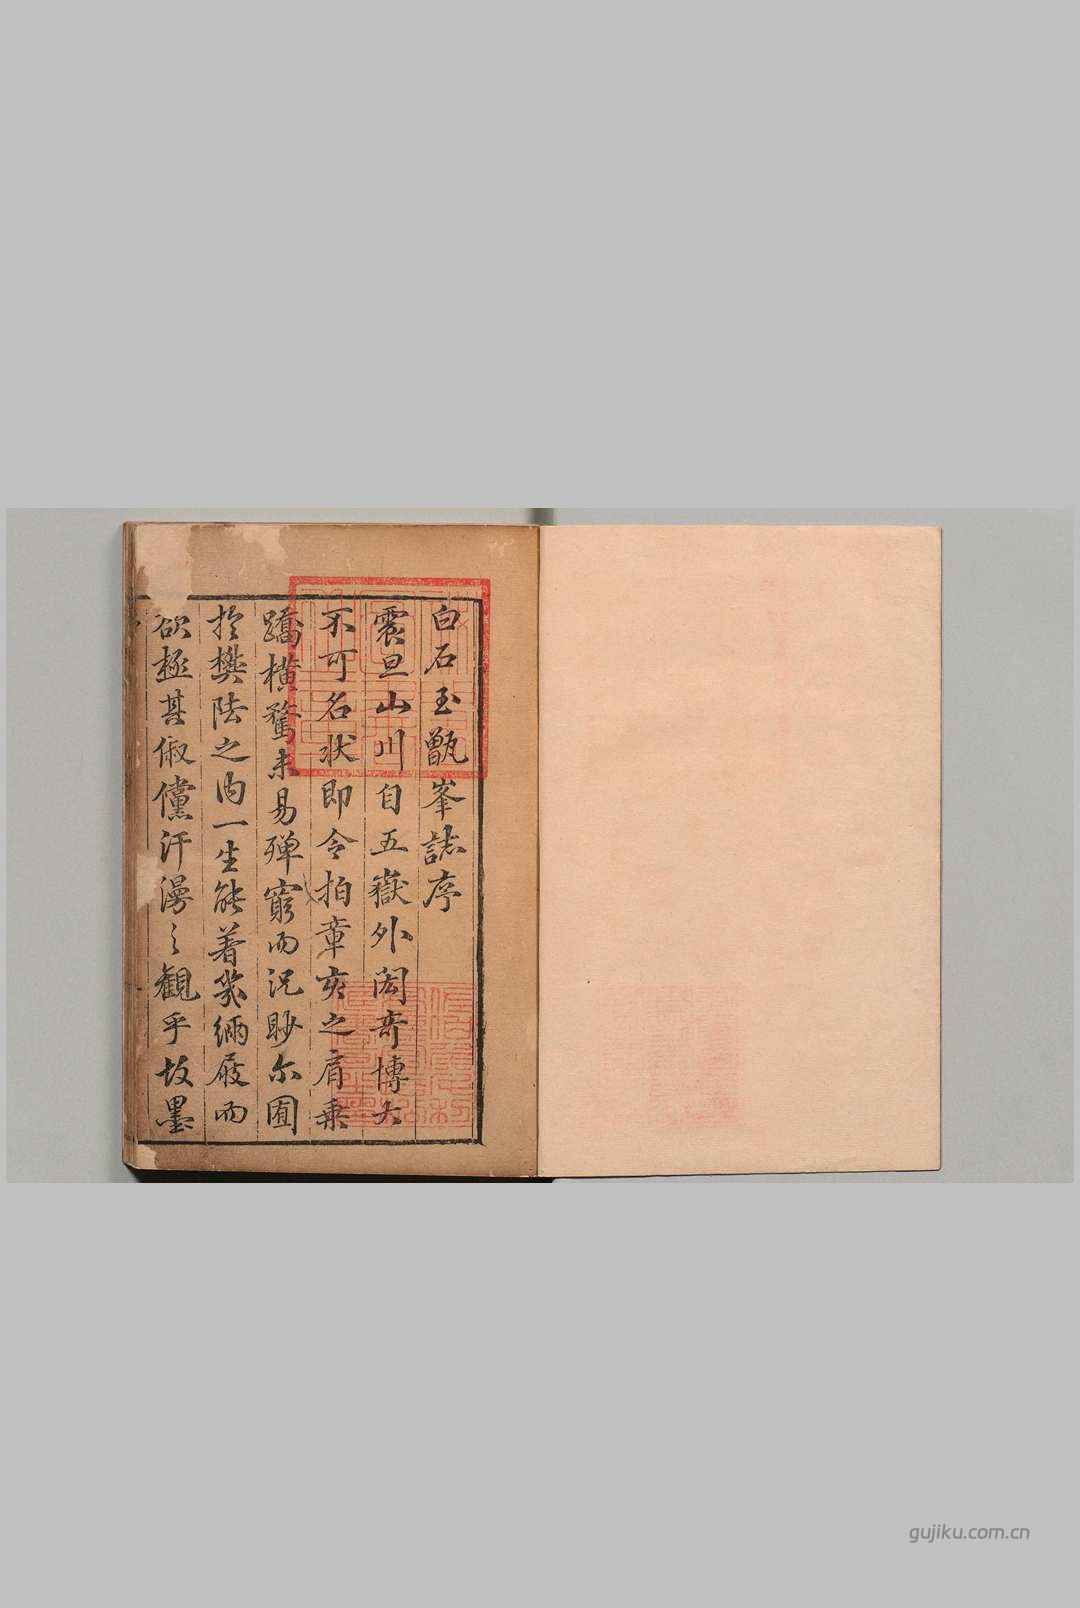 白石玉甑峯誌序
震旦山川自五嶽外閎奇博大
不可名状即令拍章亥之肩乗
蹻横騖未易殫窮而況眇尒囿
扵樊陸之内一生能着幾緉屐而
欲極其俶儻汗漫之觀乎故墨
gujiku.com.cn